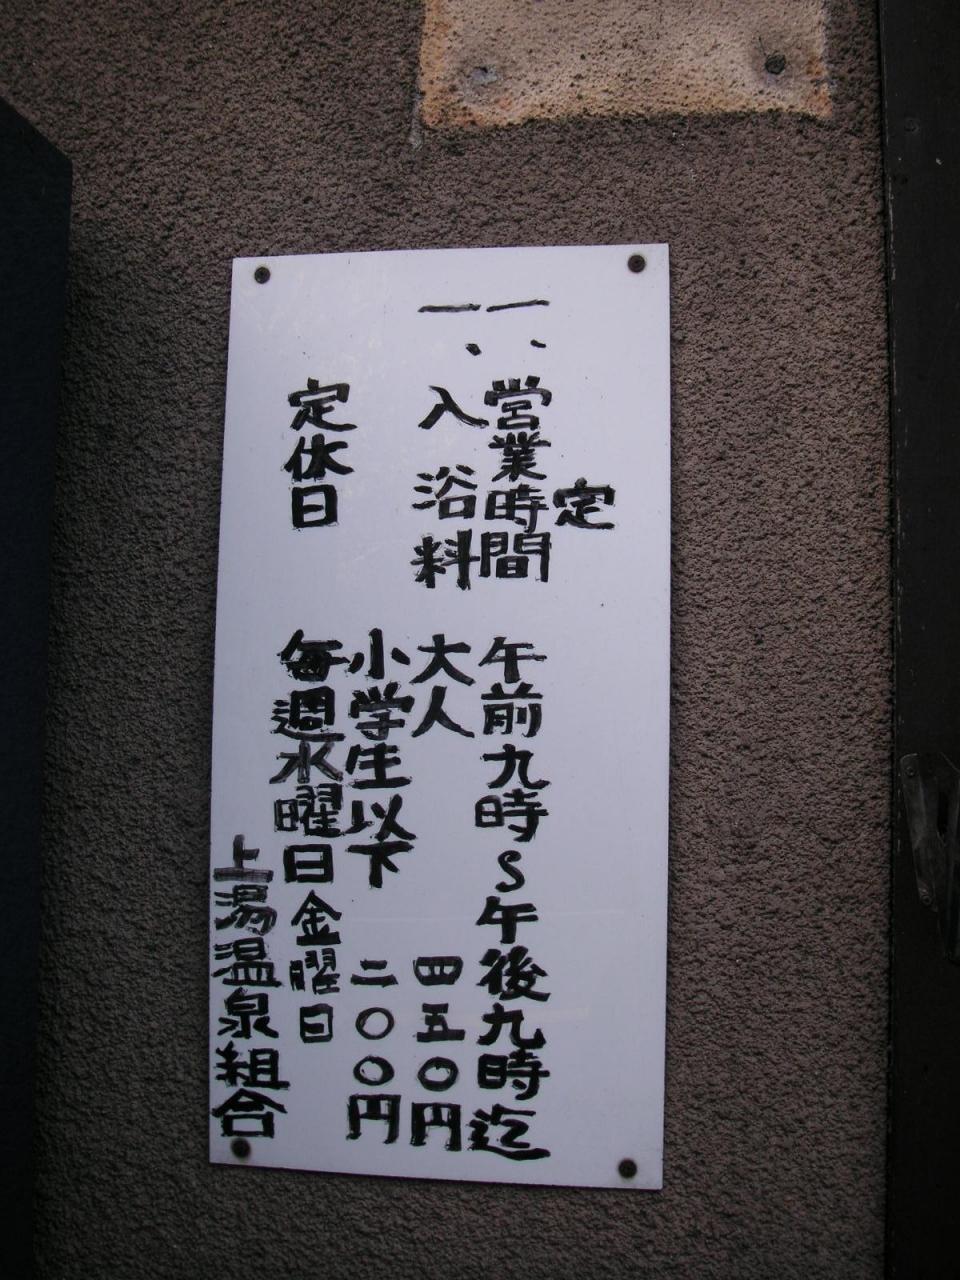 定
一、営業時間 午前九時~午後九時迄
一、入浴料 大人 四五〇円
小学生以下 二〇〇円
定休日 毎週水曜日金曜日
上湯温泉組合